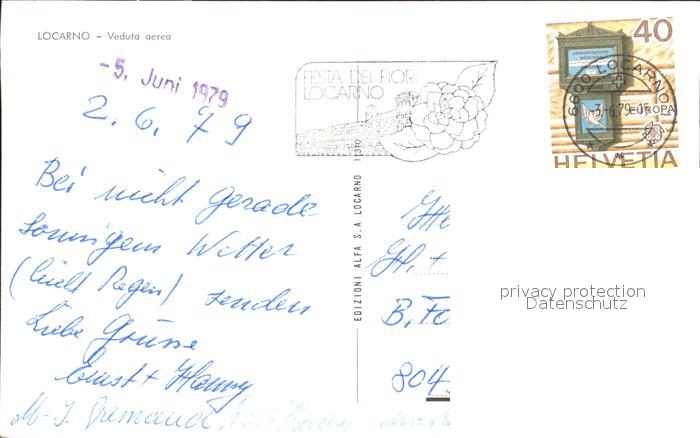 LOCARNO – Veduta aerea
-5. Juni 1979
2. 6. 79
Bei nicht gerade
sonnigem Wetter
(leicht Regen) senden
Liebe Grüsse
Ernst + Hanny
FESTA DEI FIORI
LOCARNO
EDIZIONI ALFA S.A LOCARNO
40
6600 LOCARNO
-3.-6.79-
EUROPA
HELVETIA
B. Fo
804
privacy protection
Datenschutz